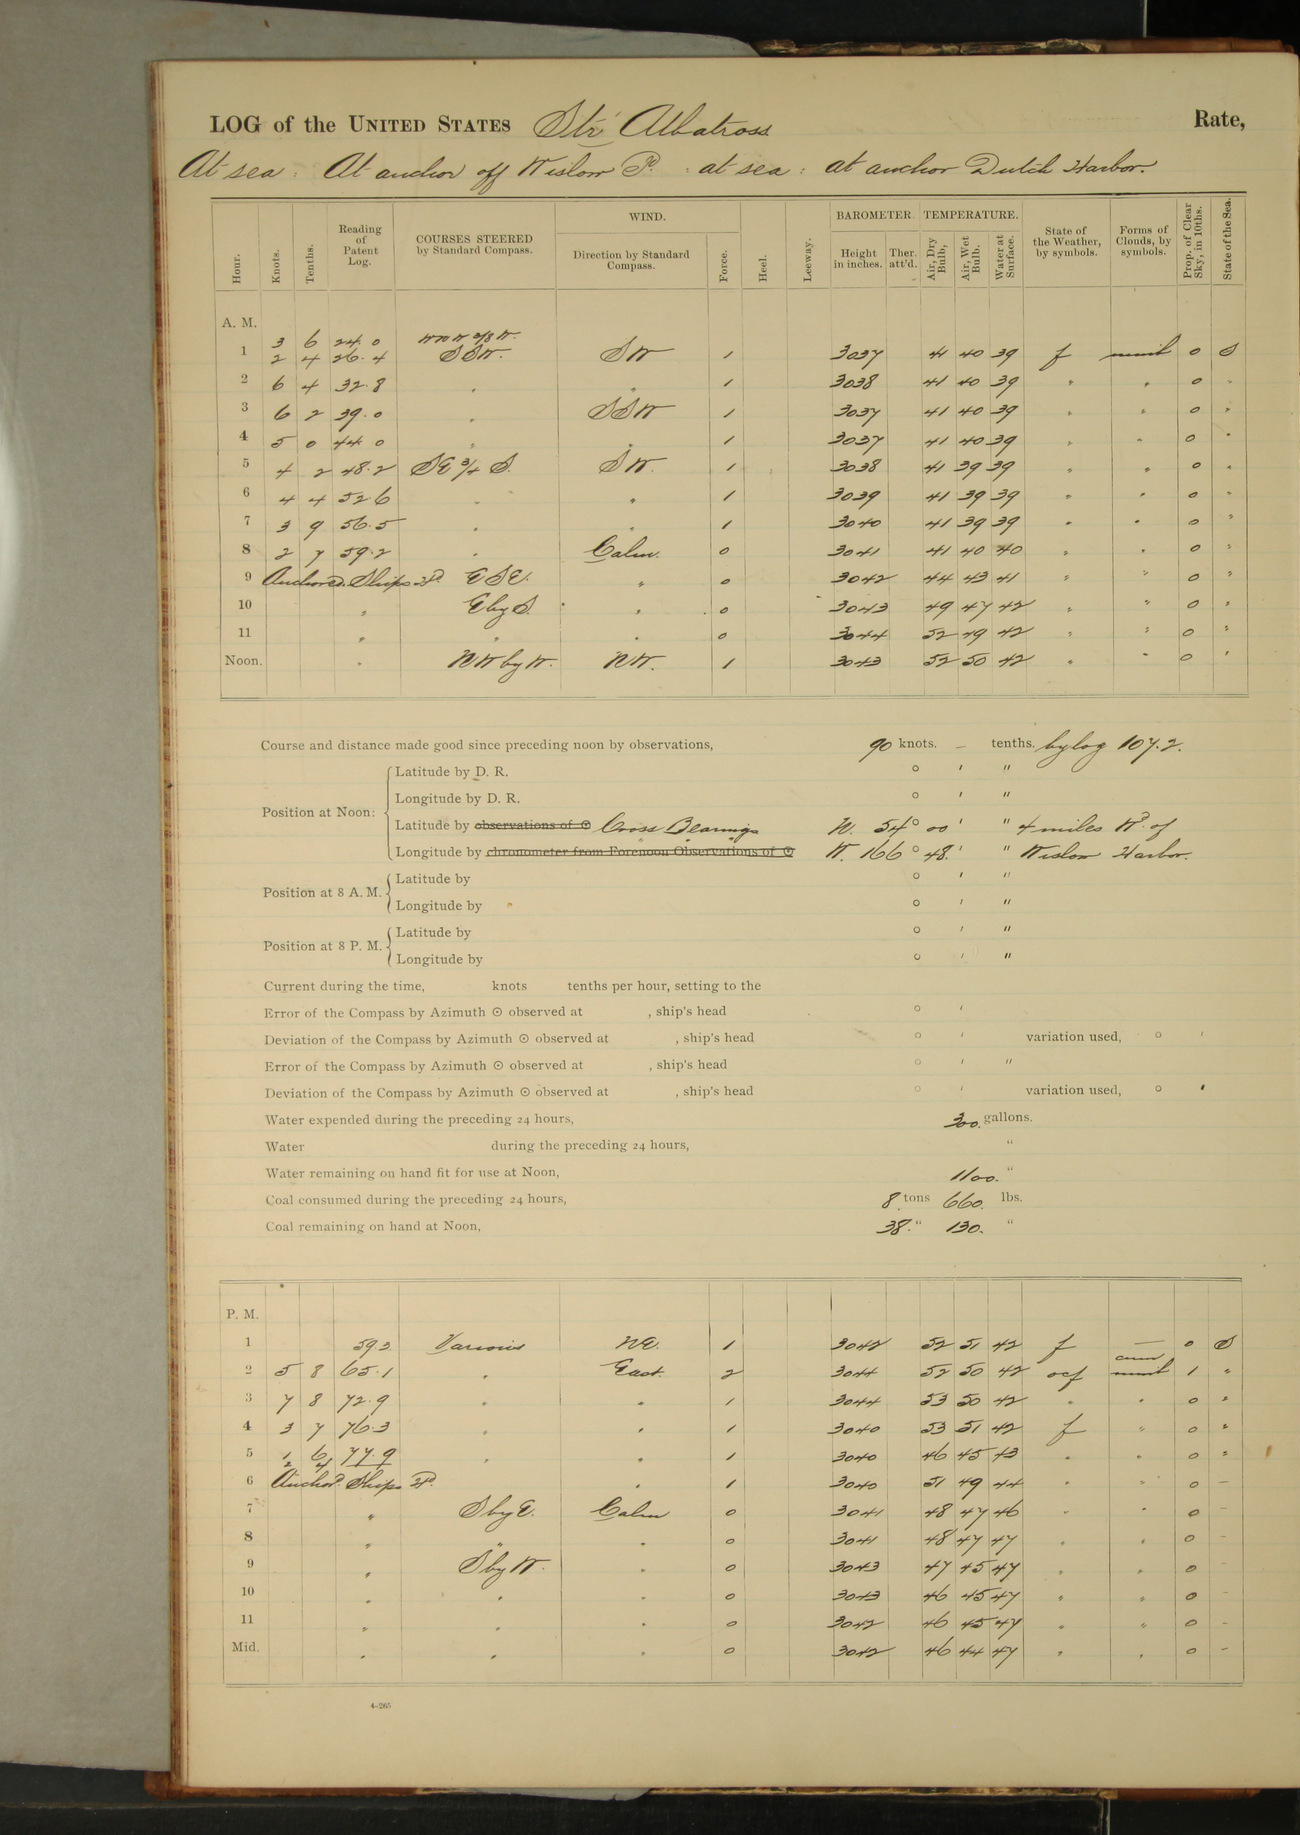 LOG of the UNITED STATES Str Albatross Rate,
At sea: At anchor off Wislow Pt: at sea: at anchor Dutch Harbor.
Hour. Knots. Tenths. Reading of Patent Log. COURSES STEERED by Standard Compass. WIND. Direction by Standard Compass. Force. Heel. Leeway. BAROMETER. Height in inches. Ther. att'd. TEMPERATURE. Air, Dry Bulb, Air, Wet Bulb. Water at Surface. State of the Weather, by symbols. Forms of Clouds, by symbols. Prop. of Clear Sky, in 10ths. State of the Sea.
A. M.
3 6 24.0 WNW 3/8 W.
1 2 4 26.4 SSW. SW 1 3037 41 40 39 f nimb 0 S
2 6 4 32.8 " " 1 3038 41 40 39 " " 0 "
3 6 2 39.0 " SSW 1 3037 41 40 39 " " 0 "
4 5 0 44.0 " " 1 3037 41 40 39 " " 0 "
5 4 2 48.2 SE 3/4 S. SW. 1 3038 41 39 39 " " 0 "
6 4 4 52.6 " " 1 3039 41 39 39 " " 0 "
7 3 9 56.5 " " 1 3040 41 39 39 " " 0 "
8 2 7 59.2 " Calm. 0 3041 41 40 40 " " 0 "
9 Anchored. Ships Hd. ESE. " 0 3042 44 43 41 " " 0 "
10 " E by S. " 0 3043 49 47 42 " " 0 "
11 " " " 0 3044 52 49 42 " " 0 "
Noon. " NW by W. NW. 1 3043 52 50 42 " " 0 "
Course and distance made good since preceding noon by observations, 90 knots. – tenths. by log 107.2.
Position at Noon:
Latitude by D. R. ° ′ ″
Longitude by D. R. ° ′ ″
Latitude by observations of ☉ Cross Bearings N. 54° 00′ ″ 4 miles Wd. of
Longitude by chronometer from Forenoon Observations of ☉ W. 166° 48.′ ″ Wislow Harbor.
Position at 8 A. M.
Latitude by ° ′ ″
Longitude by ° ′ ″
Position at 8 P. M.
Latitude by ° ′ ″
Longitude by ° ′ ″
Current during the time, knots tenths per hour, setting to the
Error of the Compass by Azimuth ☉ observed at , ship's head ° ′
Deviation of the Compass by Azimuth ☉ observed at , ship's head ° ′ variation used, ° ′
Error of the Compass by Azimuth ☉ observed at , ship's head ° ′ ″
Deviation of the Compass by Azimuth ☉ observed at , ship's head ° ′ variation used, ° ′
Water expended during the preceding 24 hours, 300. gallons.
Water during the preceding 24 hours, "
Water remaining on hand fit for use at Noon, 1100. "
Coal consumed during the preceding 24 hours, 8 tons 660. lbs.
Coal remaining on hand at Noon, 38. " 130. "
P. M.
1 59.2 Various NE. 1 3042 52 51 42 f — 0 S
2 5 8 65.1 " East. 2 3044 52 50 42 ocf cum nimb 1 "
3 7 8 72.9 " " 1 3044 53 50 42 " " 0 "
4 3 7 76.3 " " 1 3040 53 51 42 f " 0 "
5 1 6 77.9 " " 1 3040 46 45 43 " " 0 "
2 4
6 Anchd. Ships Hd. " 1 3040 51 49 44 " " 0 –
7 " S by E. Calm 0 3041 48 47 46 " " 0 –
8 " " " 0 3041 48 47 47 " " 0 –
9 " S by W. " 0 3043 47 45 47 " " 0 –
10 " " " 0 3043 46 45 47 " " 0 –
11 " " " 0 3042 46 45 47 " " 0 –
Mid. " " " 0 3042 46 44 47 " " 0 –
4–265